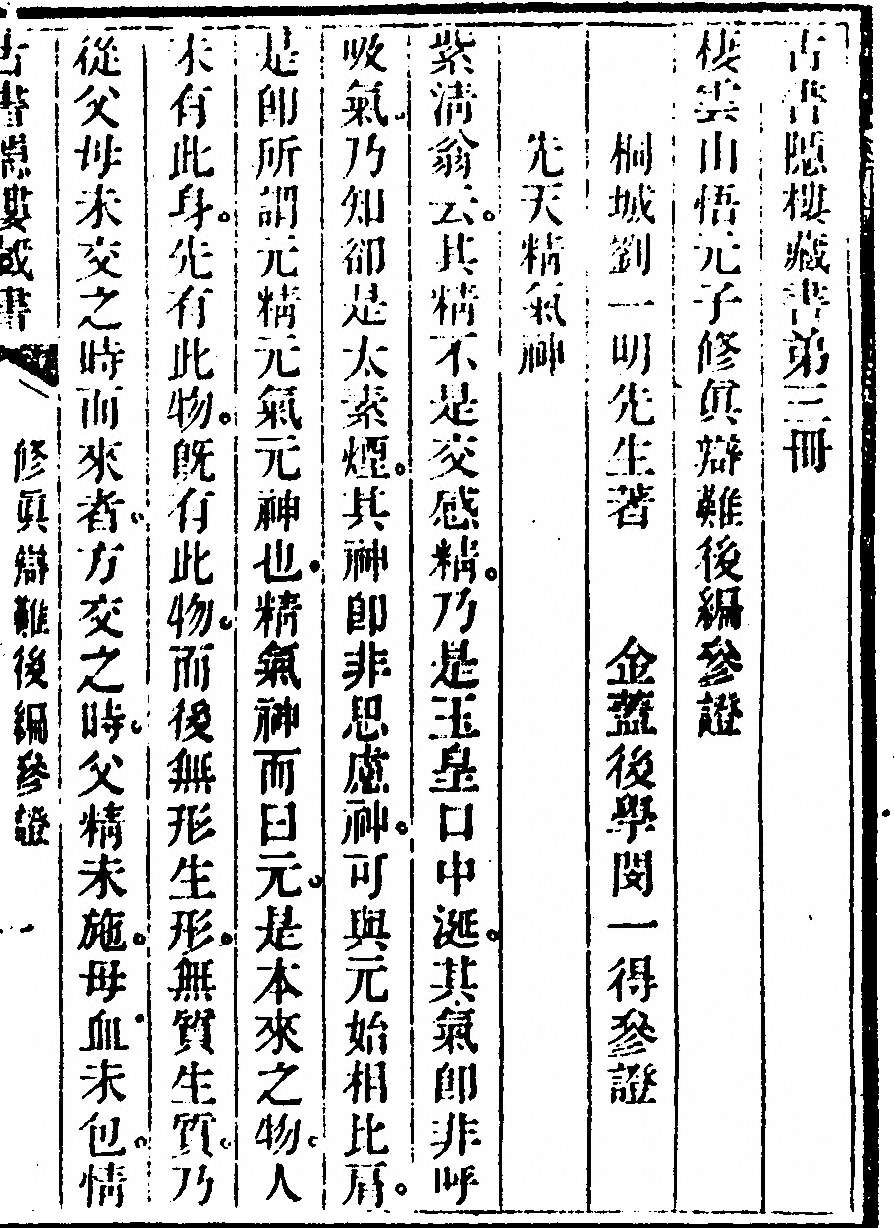 古書隱樓藏書第三冊
棲雲山悟元子修眞辯難後編參證
桐城劉一明先生著 金蓋後學閔一得參證
先天精氣神
紫淸翁云。其精不是交感精。乃是玉皇口中涎。其氣卽非呼
吸氣。乃知卻是太素煙。其神卽非思慮神。可與元始相比肩。
是卽所謂元精元氣元神也。精氣神而曰元。是本來之物。人
未有此身。先有此物。旣有此物。而後無形生形。無質生質。乃
從父母未交之時而來者。方交之時。父精未施。母血未包。情
古書隱樓藏書 修眞辯難後編參證